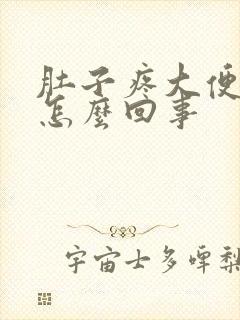 肚子疼大便
怎麼回事
宇宙士多啤梨